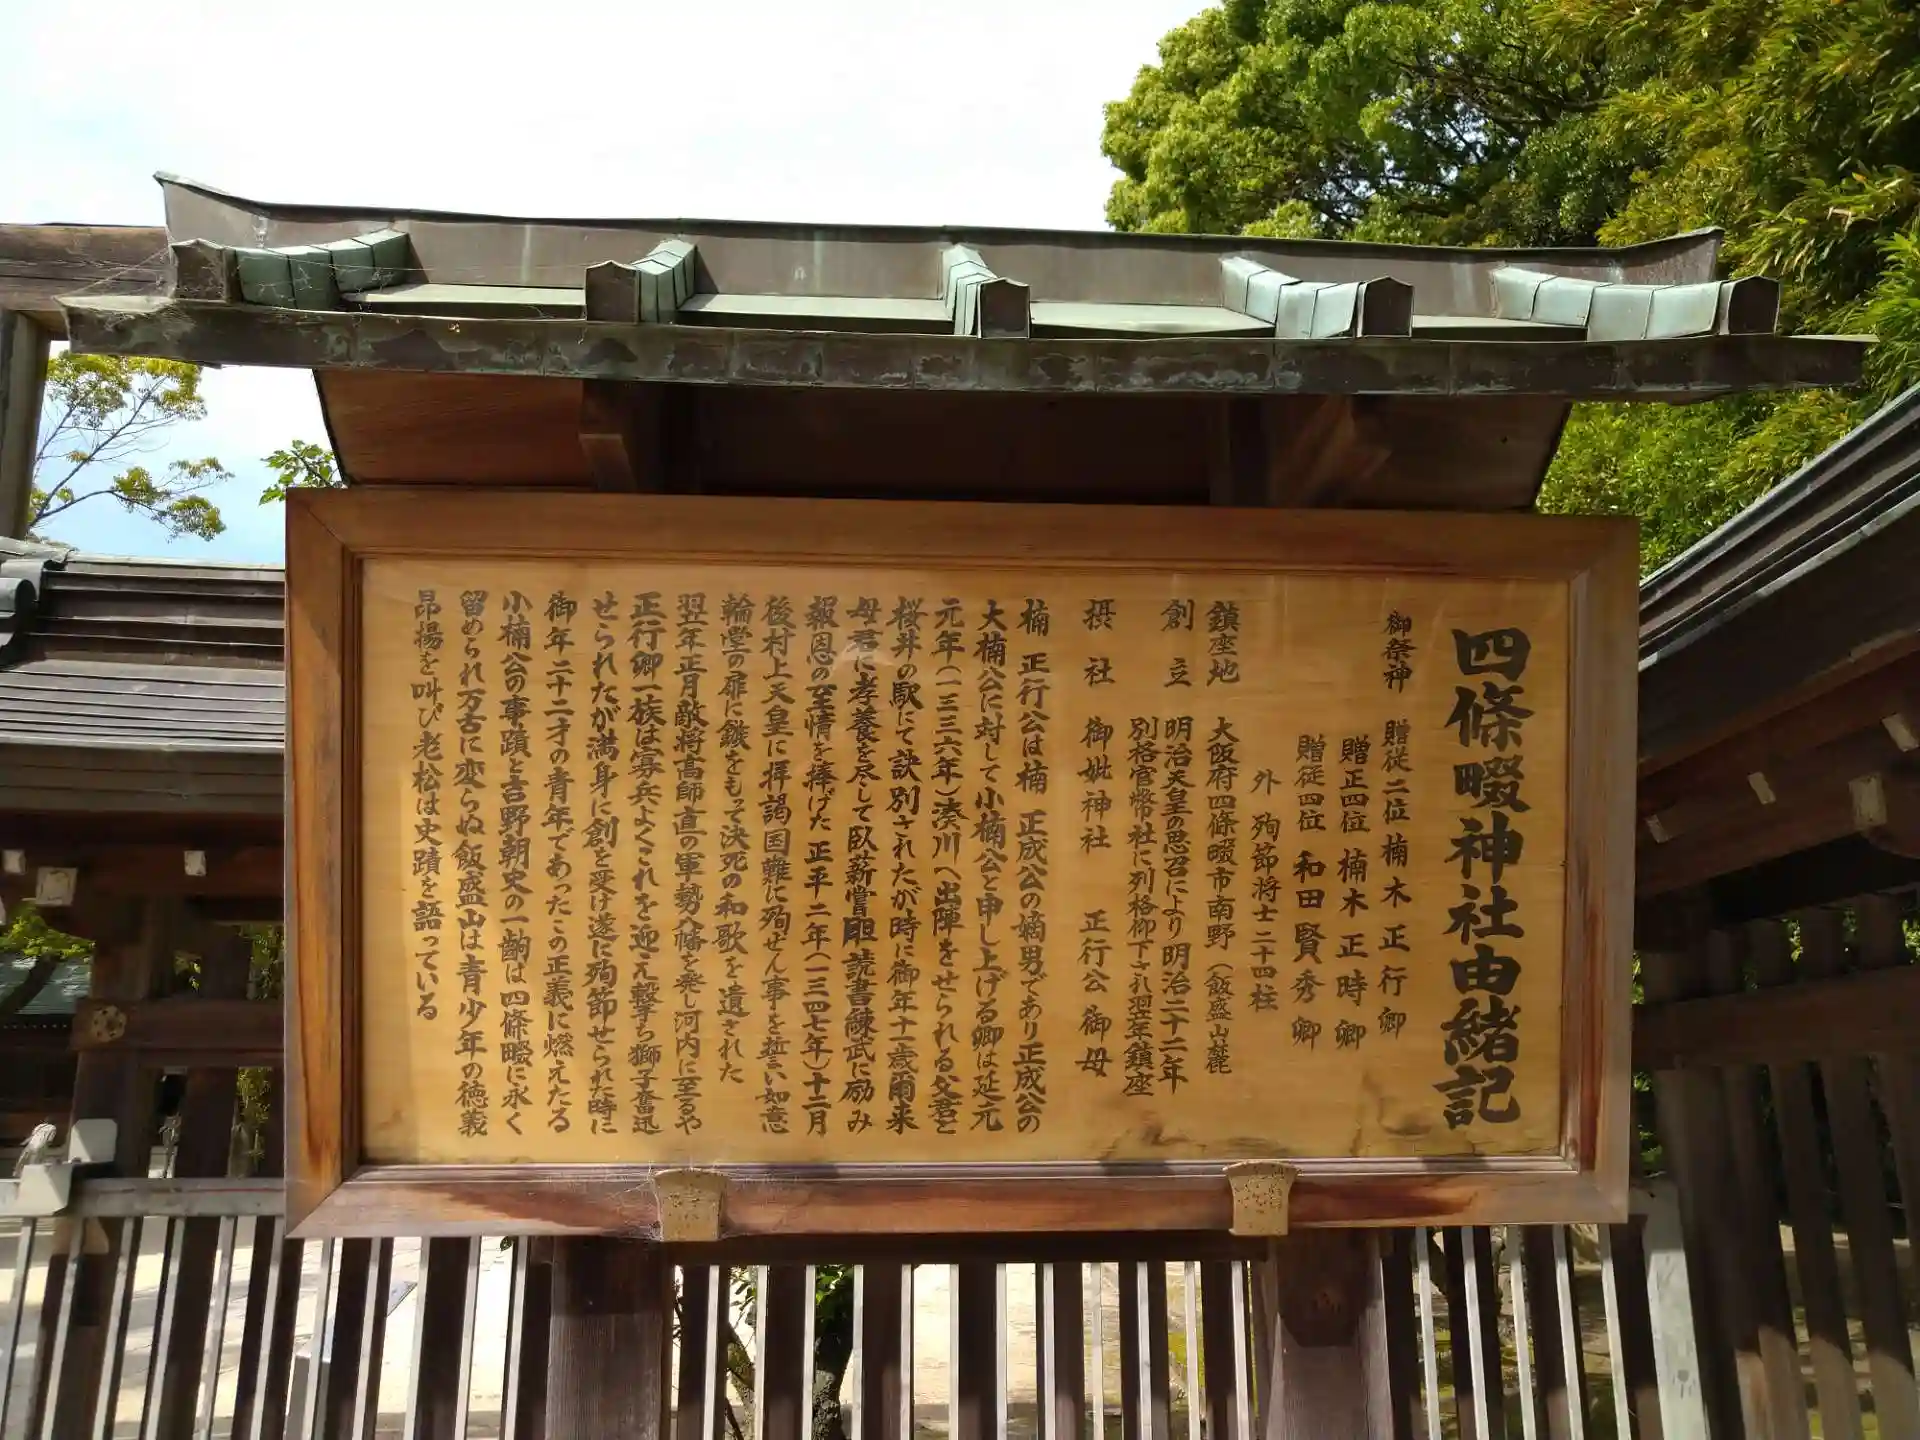 四條畷神社由緒記
御祭神 贈従二位 楠木正行卿
贈正四位 楠木正時卿
贈従四位 和田賢秀卿
外 殉節将士二十四柱
鎮座地 大阪府四條畷市南野(飯盛山麓
創立 明治天皇の思召により明治二十二年
別格官幣社に列格仰下され翌年鎮座
摂社 御妣神社 正行公御母
楠 正行公は楠 正成公の嫡男であり正成公の
大楠公に対して小楠公と申し上げる卿は延元
元年(一三三六年)湊川へ出陣をせられる父君と
桜井の駅にて訣別されたが時に御年十一歳爾来
母君に孝養を尽して臥薪嘗胆読書練武に励み
報恩の至情を捧げた 正平二年(一三四七年)十二月
後村上天皇に拝謁国難に殉ぜん事を誓い如意
輪堂の扉に鏃をもって決死の和歌を遺された
翌年正月敵将高師直の軍勢八幡を発し河内に至るや
正行卿一族は寡兵よくこれを迎え撃ち獅子奮迅
せられたが満身に創を受け遂に殉節せられた時に
御年二十二才の青年であったこの正義に燃えたる
小楠公の事蹟と吉野朝史の一齣は四條畷に永く
留められ万古に変らぬ飯盛山は青少年の徳義
昂揚を叫び老松は史蹟を語っている